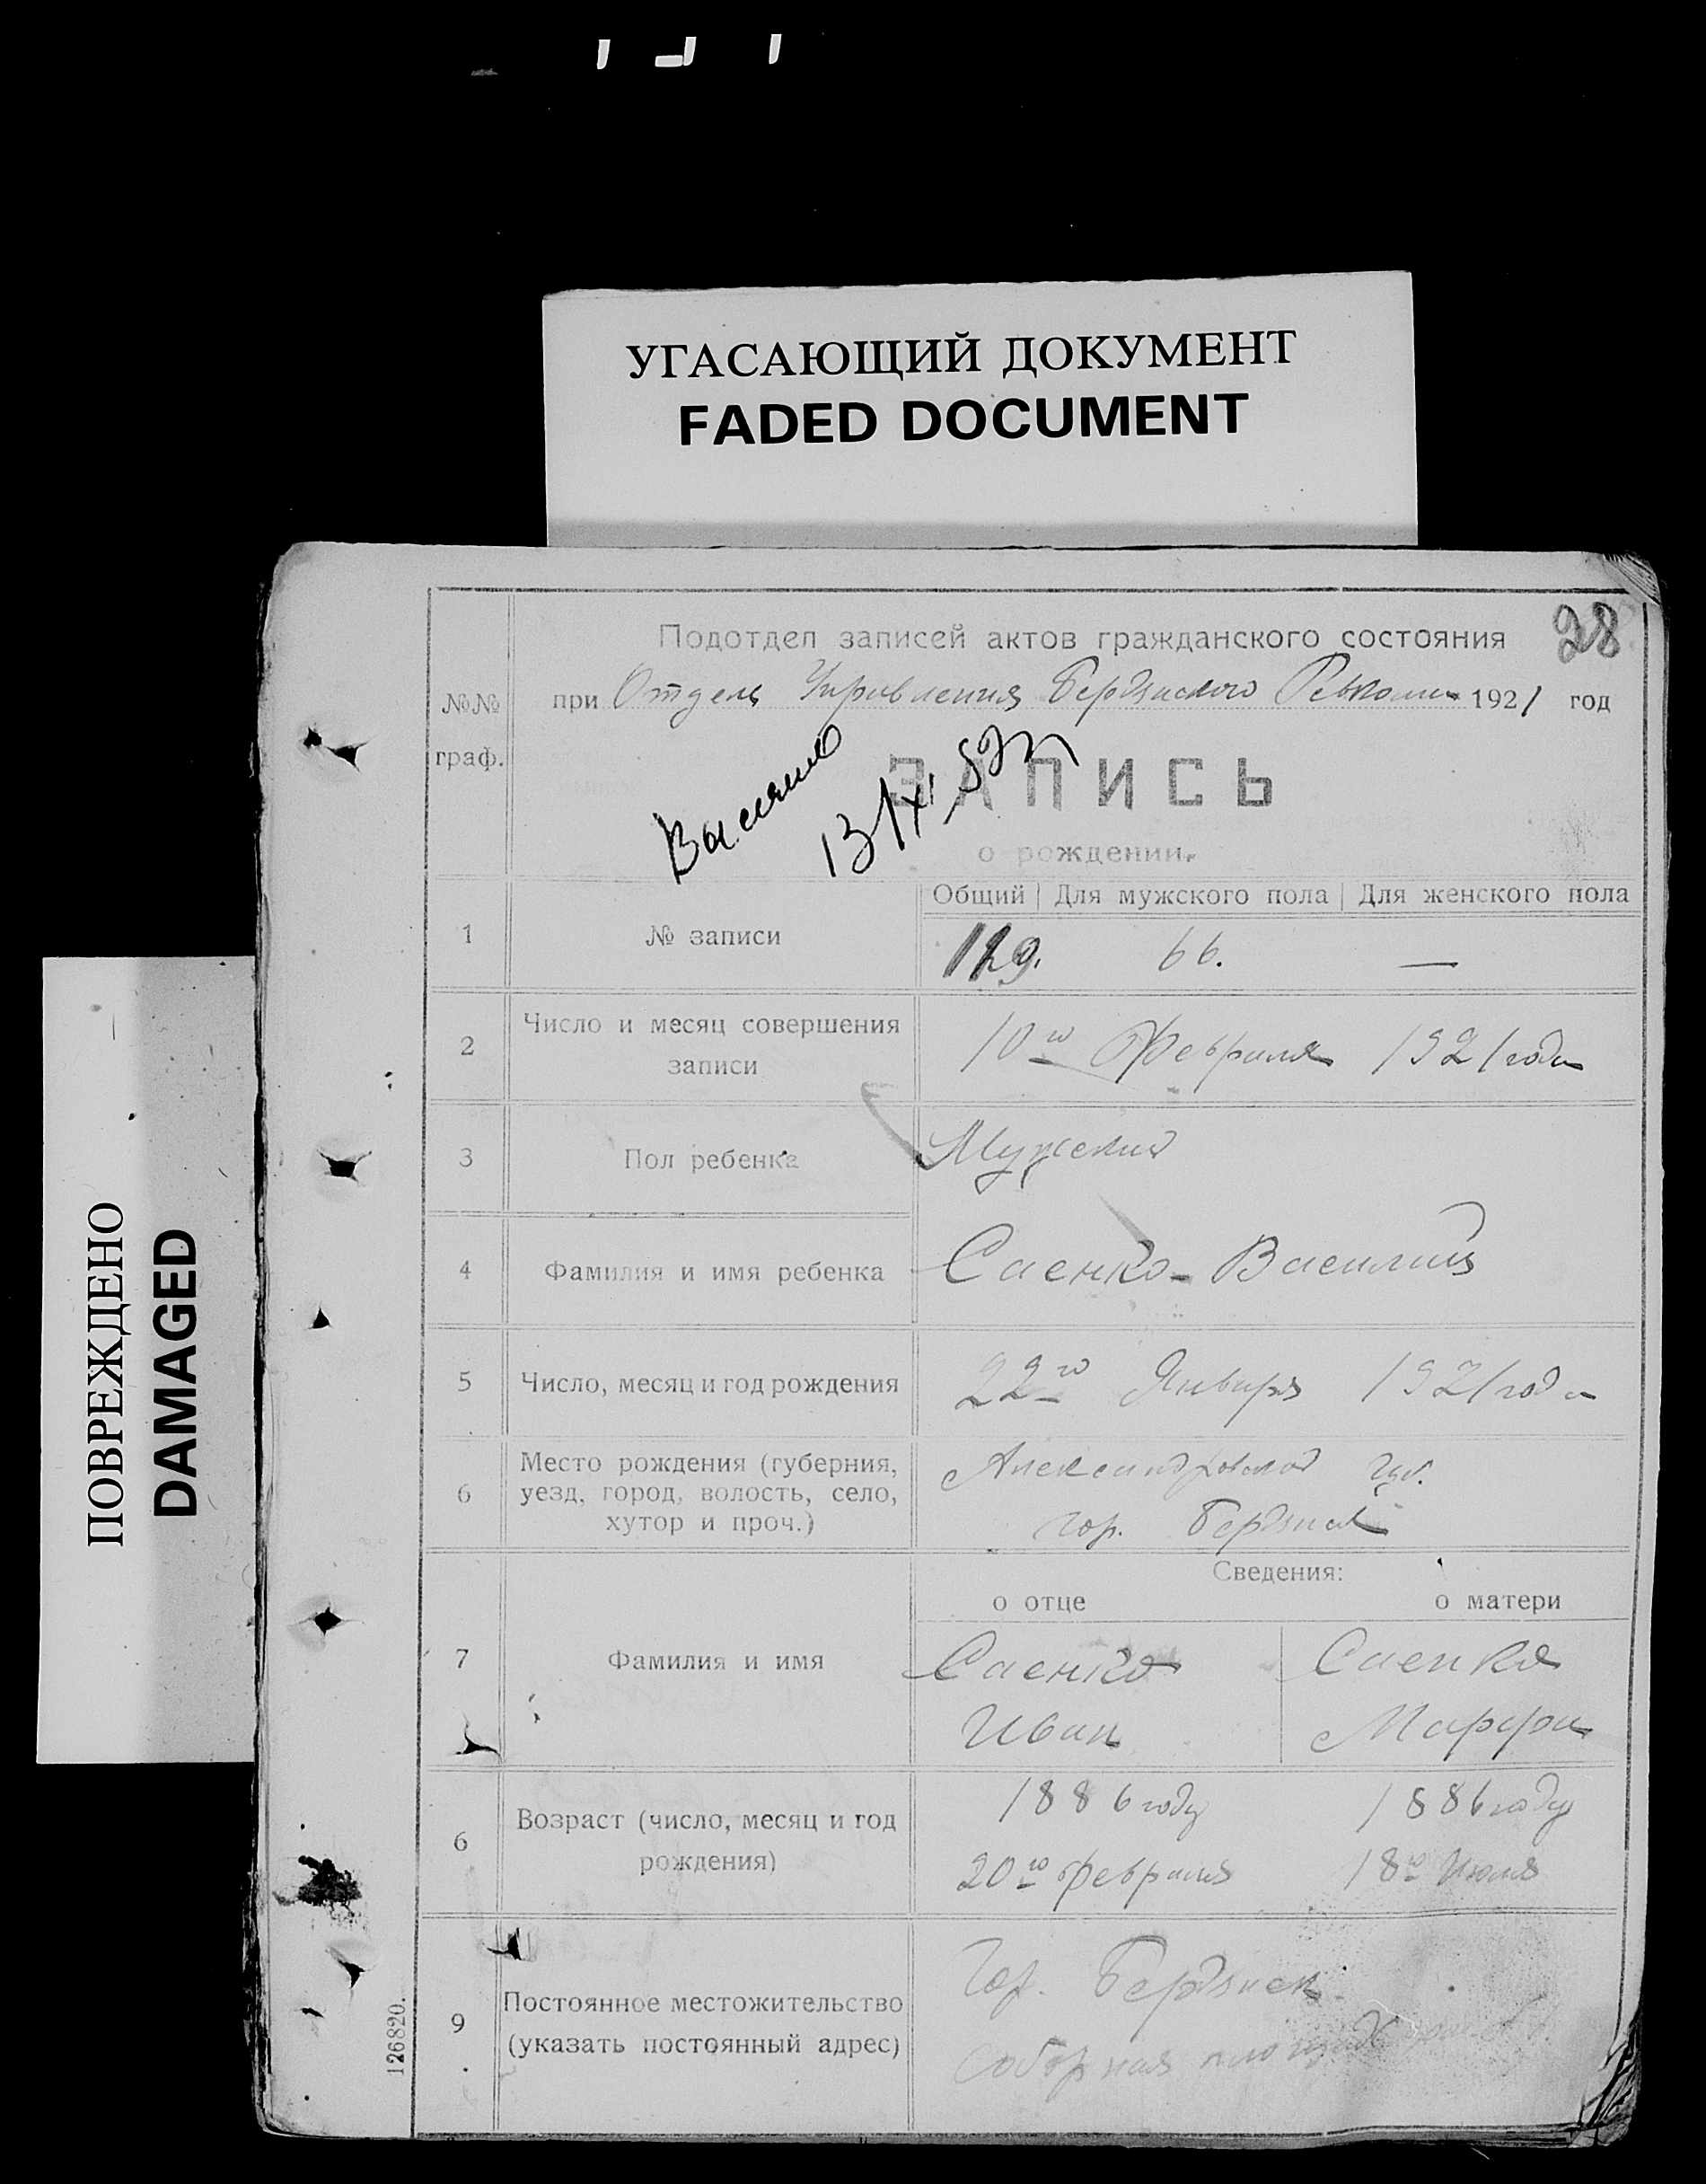 УГАСАЮЩИЙ ДОКУМЕНТ
FADED DOCUMENT
ПОВРЕЖДЕНО
DAMAGED
28
Подотдел записей актов гражданского состояния
№№ граф.
при Отдель Управления Бердянского Ревкома 1921 год
ЗАПИСЬ
о рождении.
Выслано
13/XI 52
Общий Для мужского пола Для женского пола
1 № записи 129. 66. —
2 Число и месяц совершения записи 10го Февраля 1921 года
3 Пол ребенка Мужской
4 Фамилия и имя ребенка Саенко - Василий
5 Число, месяц и год рождения 22го Января 1921 года
6 Место рождения (губерния, уезд, город, волость, село, хутор и проч.) Александровской губ.
гор. Бердянск
Сведения:
о отце о матери
7 Фамилия и имя Саенко Саенко
Иван Марфа
6 Возраст (число, месяц и год рождения) 1886 году 1886 году
20го февраля 18го Июля
9 Постоянное местожительство (указать постоянный адрес) Гор. Бердянск
Соборная площадь
126820.